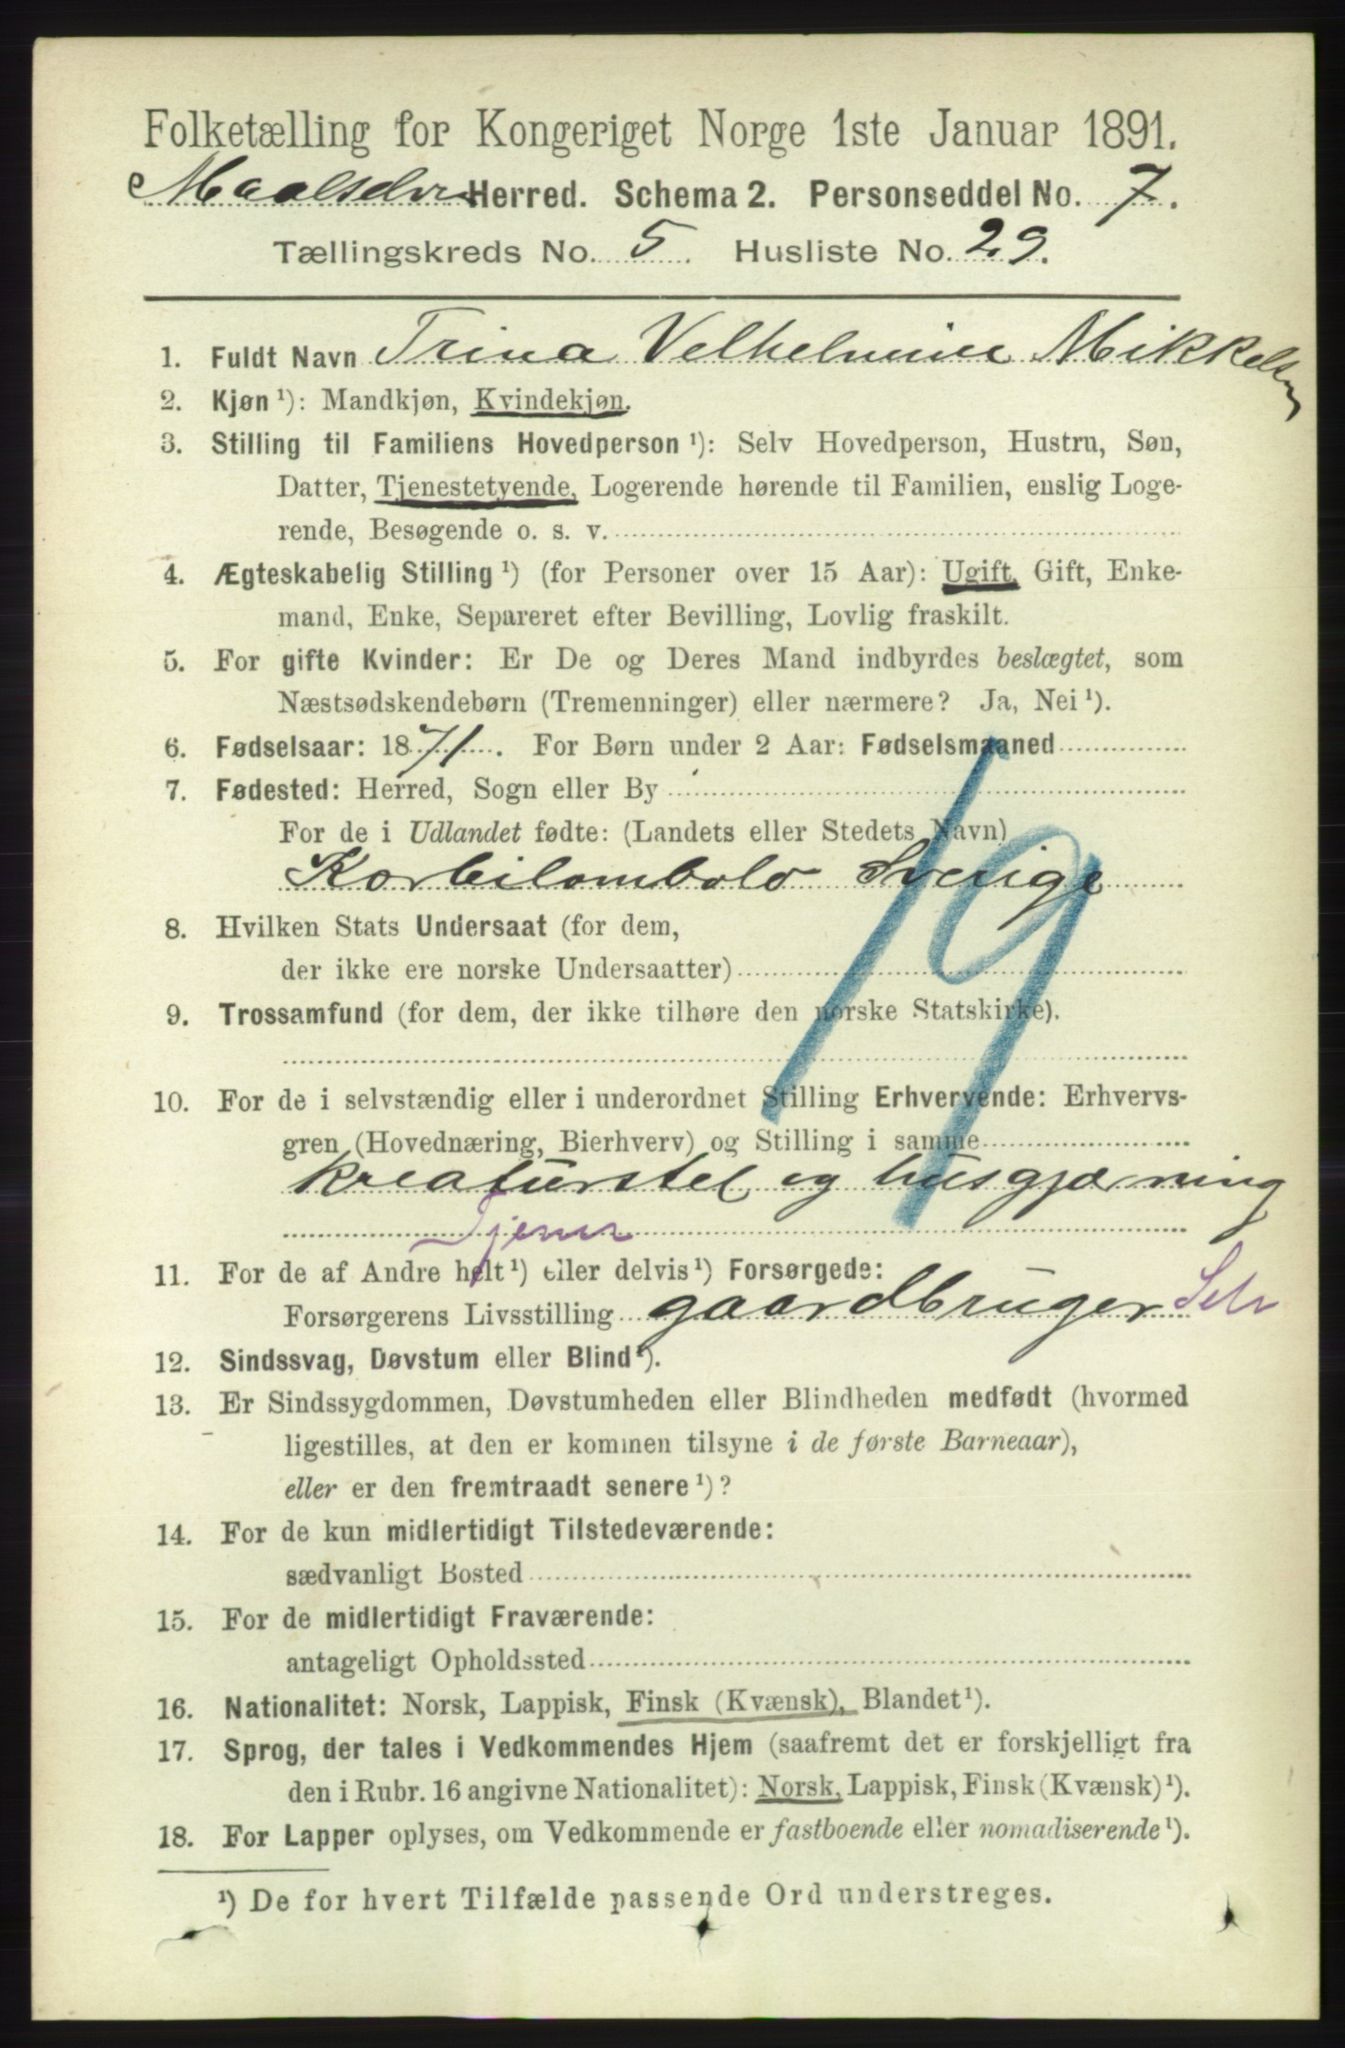 Folketælling for Kongeriget Norge 1ste Januar 1891.
Maalselv Herred. Schema 2. Personseddel No. 7.
Tællingskreds No. 5. Husliste No. 29.
1. Fuldt Navn Trina Velhelmine Mikkelsen
2. Kjøn ¹): Mandkjøn, Kvindekjøn.
3. Stilling til Familiens Hovedperson ¹): Selv Hovedperson, Hustru, Søn,
Datter, Tjenestetyende, Logerende hørende til Familien, enslig Loge-
rende, Besøgende o. s. v.
4. Ægteskabelig Stilling ¹) (for Personer over 15 Aar): Ugift, Gift, Enke-
mand, Enke, Separeret efter Bevilling, Lovlig fraskilt.
5. For gifte Kvinder: Er De og Deres Mand indbyrdes beslægtet, som
Næstsødskendebørn (Tremenninger) eller nærmere? Ja, Nei ¹).
6. Fødselsaar: 1871. For Børn under 2 Aar: Fødselsmaaned
7. Fødested: Herred, Sogn eller By
For de i Udlandet fødte: (Landets eller Stedets Navn)
Korbilombolo Sverige
19
8. Hvilken Stats Undersaat (for dem,
der ikke ere norske Undersaatter)
9. Trossamfund (for dem, der ikke tilhøre den norske Statskirke).
10. For de i selvstændig eller i underordnet Stilling Erhvervende: Erhvervs-
gren (Hovednæring, Bierhverv) og Stilling i samme
kreaturstel og husgjærning
Tjener
11. For de af Andre helt ¹) eller delvis ¹) Forsørgede:
Forsørgerens Livsstilling gaardbruger Selv
12. Sindssvag, Døvstum eller Blind ¹).
13. Er Sindssygdommen, Døvstumheden eller Blindheden medfødt (hvormed
ligestilles, at den er kommen tilsyne i de første Barneaar),
eller er den fremtraadt senere ¹)?
14. For de kun midlertidigt Tilstedeværende:
sædvanligt Bosted
15. For de midlertidigt Fraværende:
antageligt Opholdssted
16. Nationalitet: Norsk, Lappisk, Finsk (Kvænsk), Blandet ¹).
17. Sprog, der tales i Vedkommendes Hjem (saafremt det er forskjelligt fra
den i Rubr. 16 angivne Nationalitet): Norsk, Lappisk, Finsk (Kvænsk) ¹).
18. For Lapper oplyses, om Vedkommende er fastboende eller nomadiserende ¹).
¹) De for hvert Tilfælde passende Ord understreges.